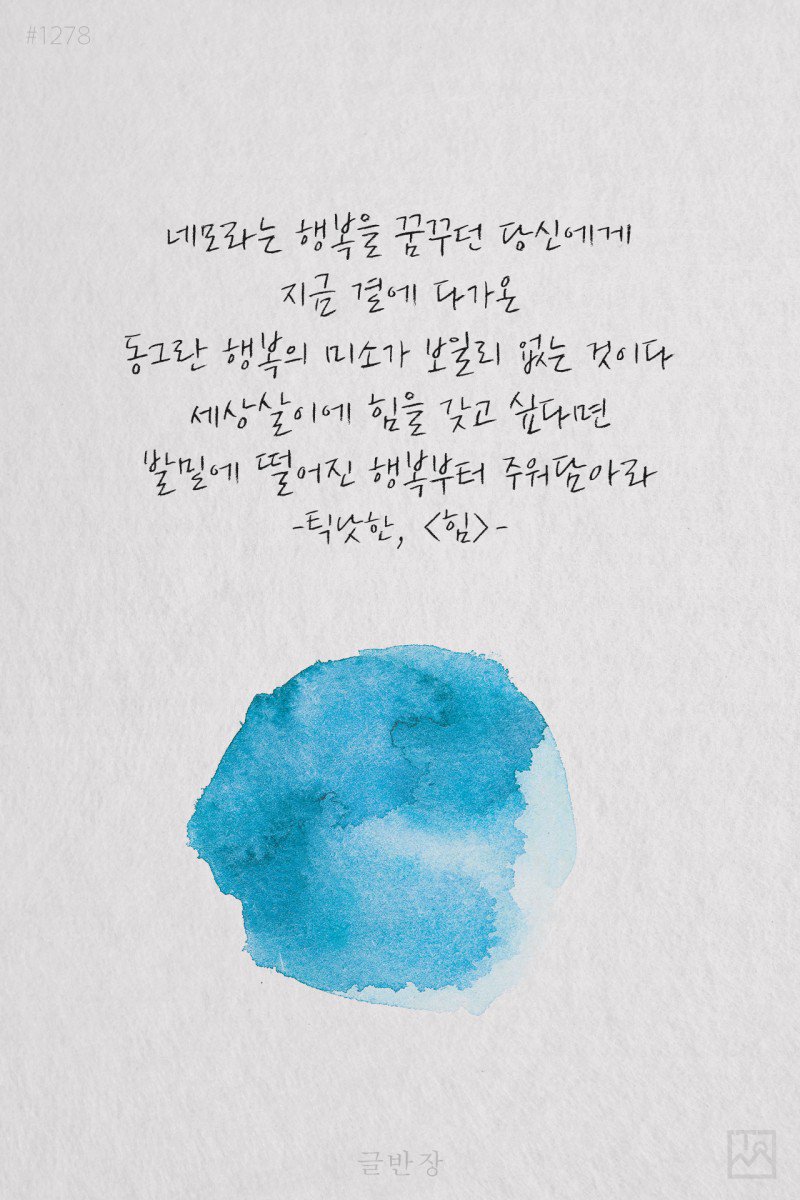 #1278
네모라는 행복을 꿈꾸던 당신에게
지금 곁에 다가온
동그란 행복의 미소가 보일리 없는 것이다
세상살이에 힘을 갖고 싶다면
발밑에 떨어진 행복부터 주워담아라
-틱낫한, <힘>-
글반장